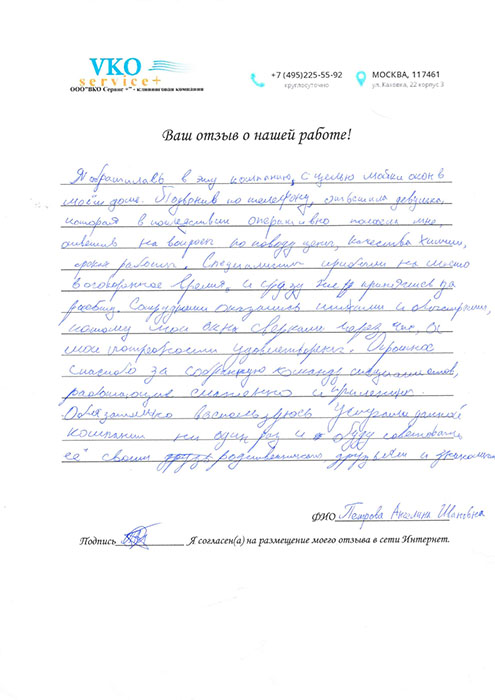 VKO
service+
ООО"ВКО Сервис +" - клининговая компания
+7 (495)225-55-92
круглосуточно
МОСКВА, 117461
ул. Каховка, 22 корпус 3
Ваш отзыв о нашей работе!
Я обратилась в эту компанию, с целью мойки окон в
моём доме. Позвонив по телефону, ответила девушка,
которая в последствие оперативно помогла мне,
ответив на вопросы по поводу цены, качества химии,
срока работы. Специалисты прибыли на место
в оговоренное время, и сразу же принялись за
работу. Сотрудники оказались
потому мои окна сверкали через час, а
мои потребности удовлетворены. Огромное
спасибо за собранную команду специалистов,
работающие слаженно и прилежно.
Обязательно воспользуюсь услугами данной
компании ни один раз и буду советовать
её своим родственникам друзьям и знакомым
ФИО Петрова Ангелина Ивановна
Подпись Я согласен(а) на размещение моего отзыва в сети Интернет.